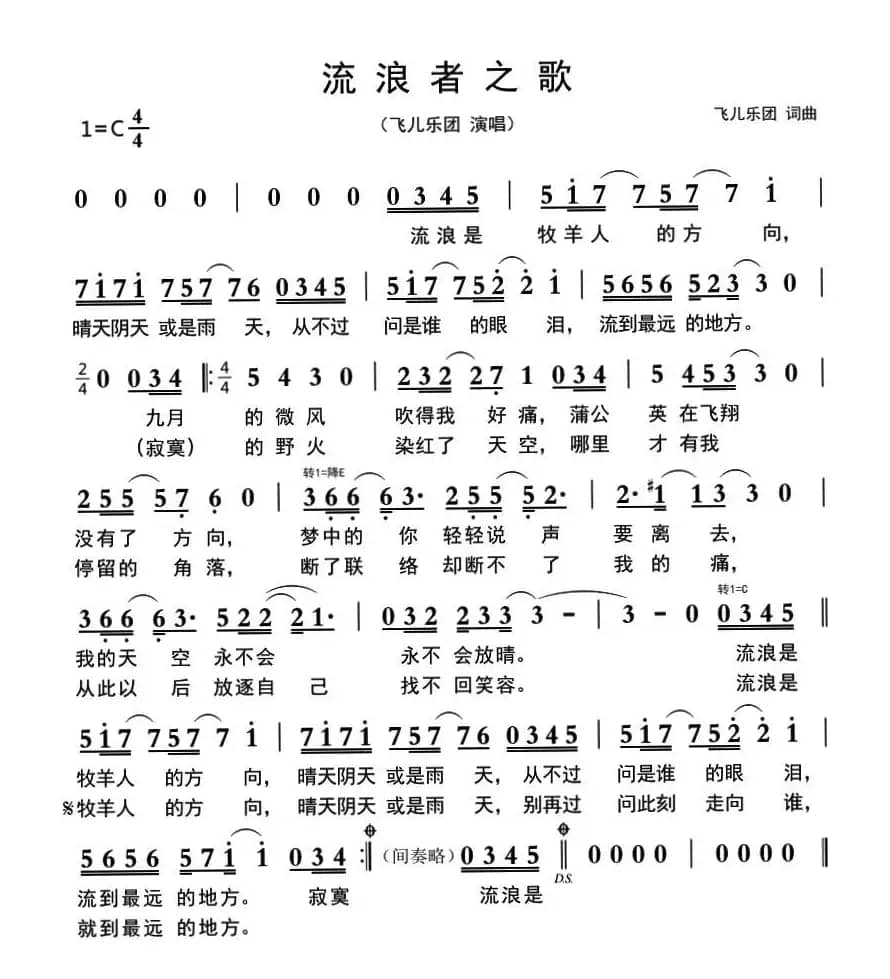 流浪者之歌
1=C 4/4 （飞儿乐团 演唱） 飞儿乐团 词曲
0 0 0 0 | 0 0 0 0345 | 5i7 757 7 i |
流浪是 牧羊人 的方 向，
7i7i 757 76 0345 | 5i7 752 2 i | 5656 523 3 0 |
晴天阴天 或是雨 天，从不过 问是谁 的眼 泪，流到最远 的地方。
2/4 0 034 |: 4/4 5 4 3 0 | 232 27 1 034 | 5 453 3 0 |
九月 的 微 风 吹得我 好 痛，蒲公 英 在飞翔
（寂寞） 的 野 火 染红了 天 空，哪里 才 有我
转1=降E
255 57 6 0 | 366 63· 255 52· | 2·#1 13 3 0 |
没有了 方 向， 梦中的 你 轻轻说 声 要 离 去，
停留的 角 落， 断了联 络 却断不 了 我 的 痛，
转1=C
366 63· 522 21· | 032 233 3 － | 3 － 0 0345 ‖
我的天 空 永不会 永不 会放晴。 流浪是
从此以 后 放逐自 己 找不 回笑容。 流浪是
5i7 757 7 i | 7i7i 757 76 0345 | 5i7 752 2 i |
牧羊人 的方 向，晴天阴天 或是雨 天，从不过 问是谁 的眼 泪，
𝄋牧羊人 的方 向，晴天阴天 或是雨 天，别再过 问此刻 走向 谁，
5656 57i i 034 :‖ （间奏略） 0345 ‖ 0000 | 0000 ‖
D.S.
流到最远 的地方。 寂寞 流浪是
就到最远 的地方。